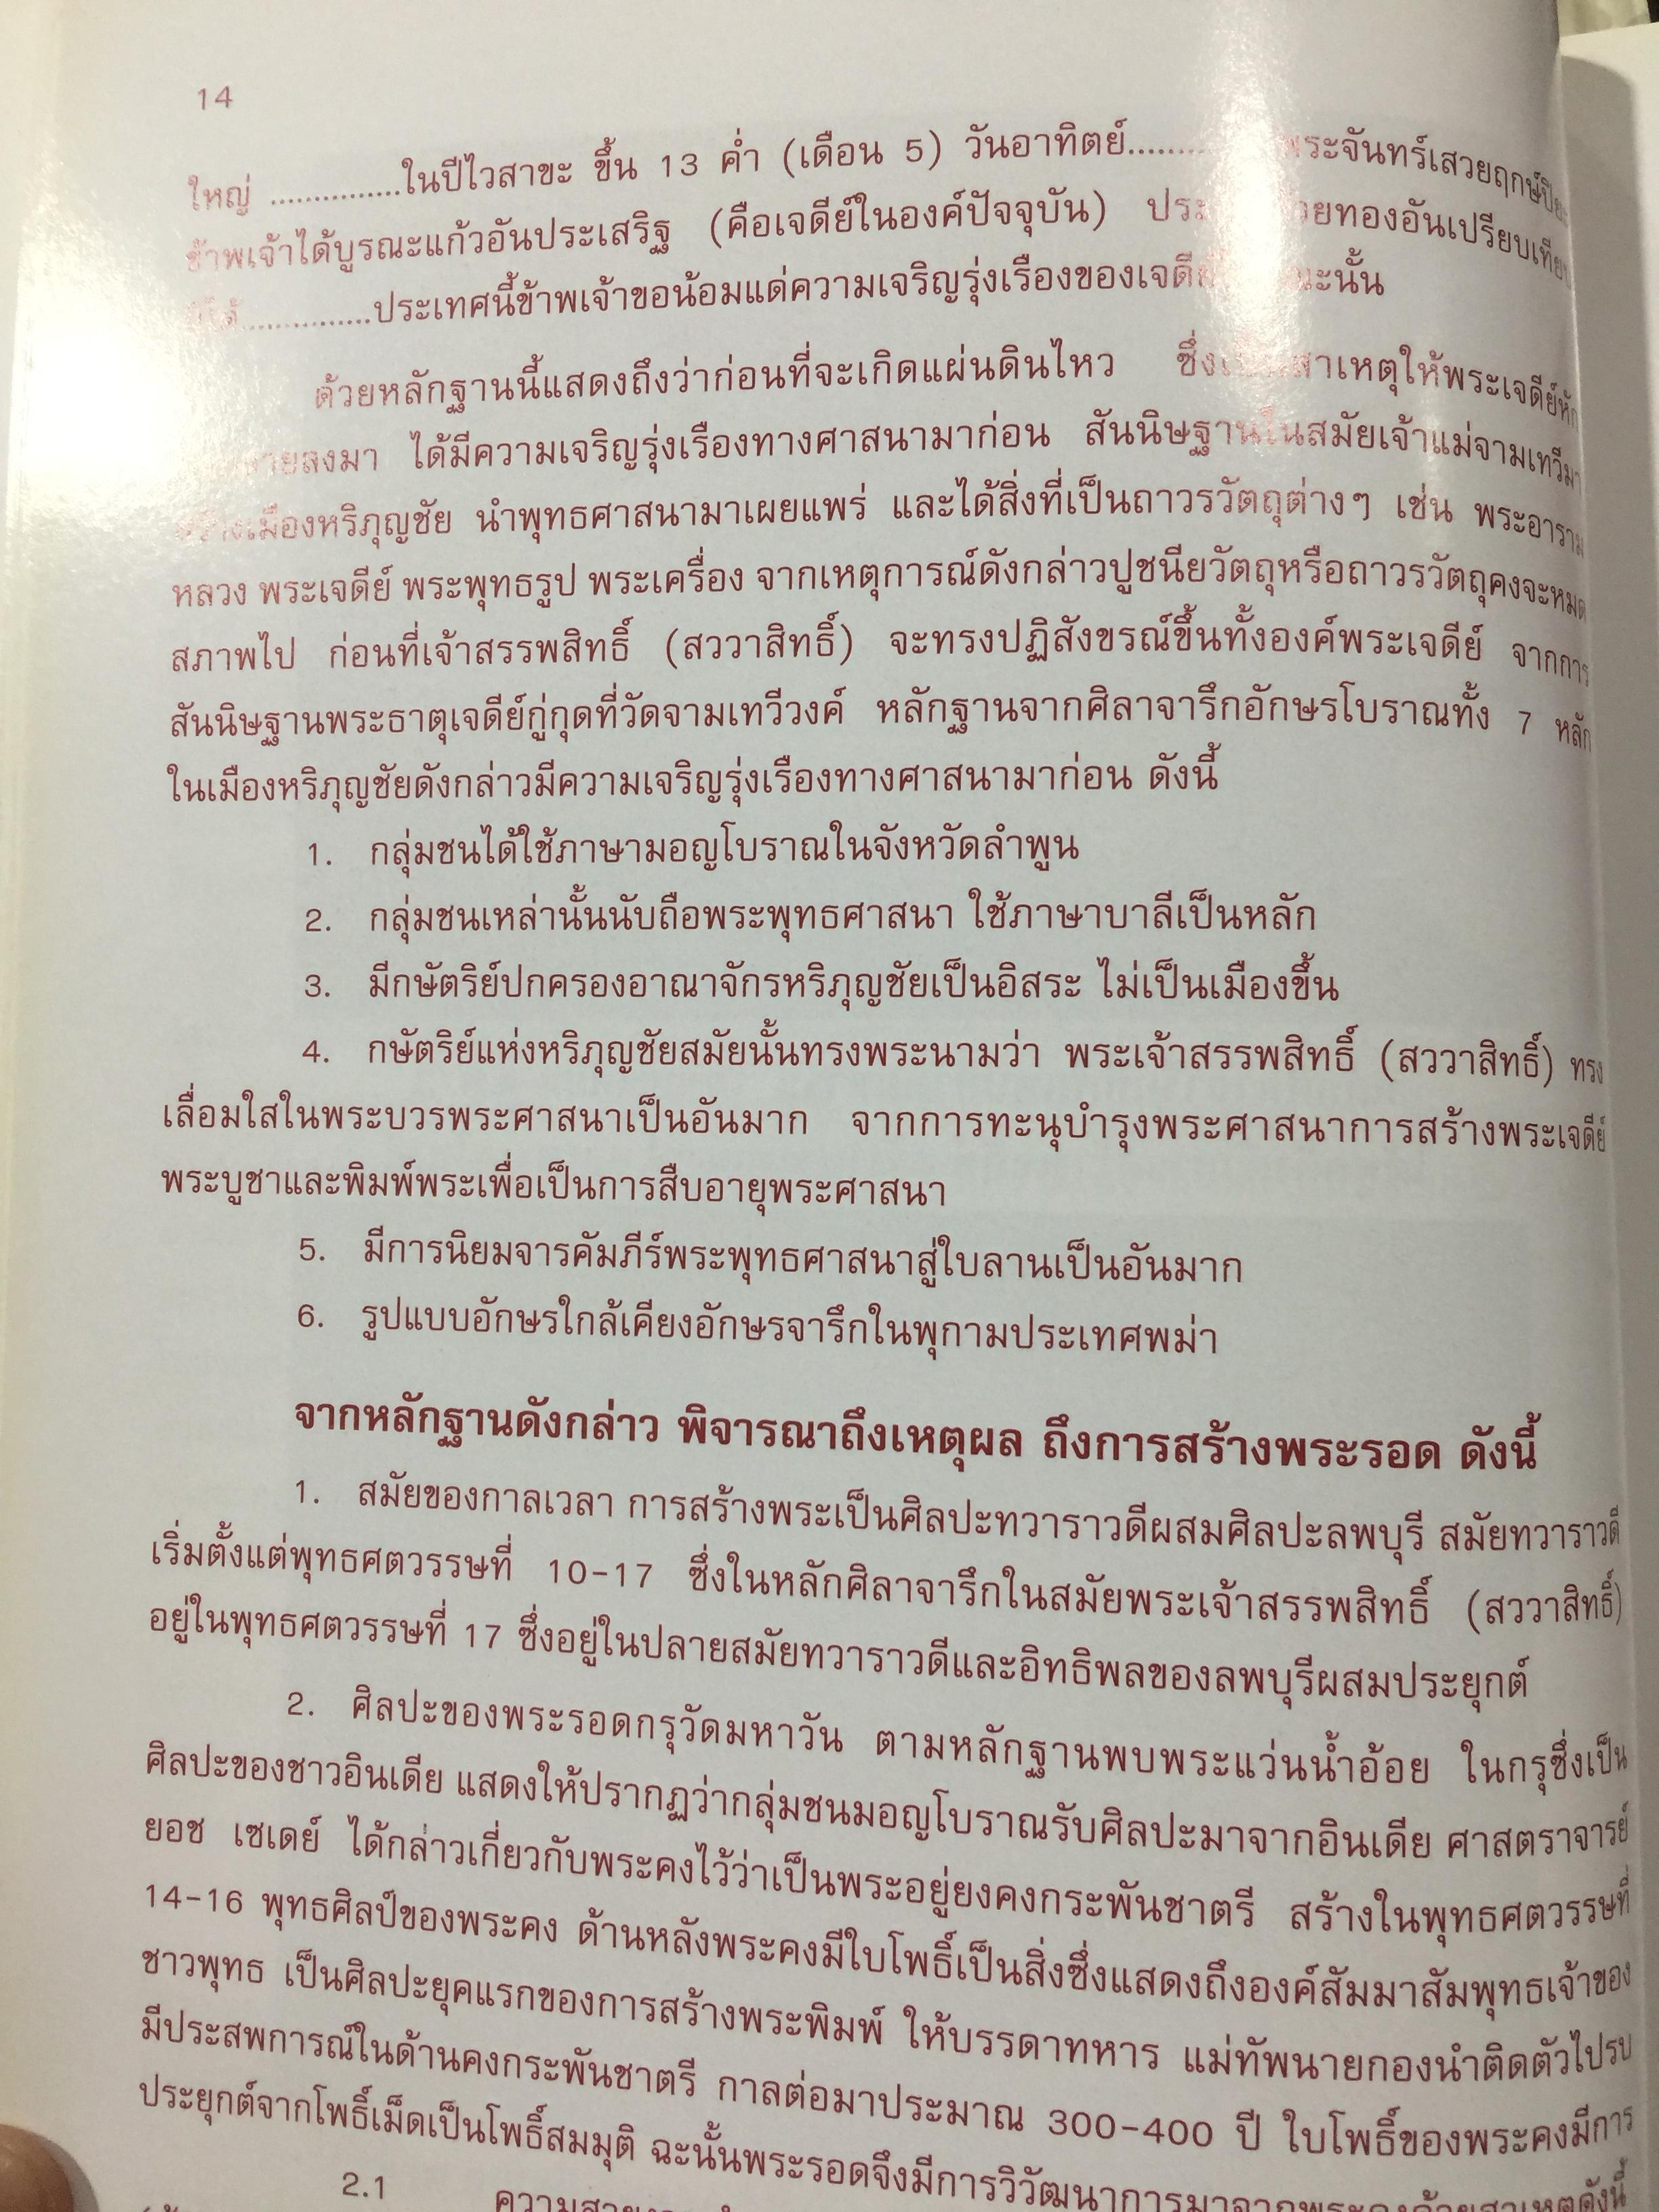 14
ใหญ่ ...............ในปีไวสาขะ ขึ้น 13 ค่ำ (เดือน 5) วันอาทิตย์......... พระจันทร์เสวยฤกษ์
ข้าพเจ้าได้บูรณะแก้วอันประเสริฐ (คือเจดีย์ในองค์ปัจจุบัน) ทองอันเปรียบเทียบ
...............ประเทศนี้ข้าพเจ้าขอน้อมแด่ความเจริญรุ่งเรืองของเจดีย์
ด้วยหลักฐานนี้แสดงถึงว่าก่อนที่จะเกิดแผ่นดินไหว ซึ่งเป็นสาเหตุให้พระเจดีย์หัก
ลงมา ได้มีความเจริญรุ่งเรืองทางศาสนามาก่อน สันนิษฐานในสมัยเจ้าแม่จามเทวีมา
สร้างเมืองหริภุญชัย นำพุทธศาสนามาเผยแพร่ และได้สิ่งที่เป็นถาวรวัตถุต่างๆ เช่น พระอาราม
หลวง พระเจดีย์ พระพุทธรูป พระเครื่อง จากเหตุการณ์ดังกล่าวปูชนียวัตถุหรือถาวรวัตถุคงจะหมด
สภาพไป ก่อนที่เจ้าสรรพสิทธิ์ (สววาสิทธิ์) จะทรงปฏิสังขรณ์ขึ้นทั้งองค์พระเจดีย์ จากการ
สันนิษฐานพระธาตุเจดีย์กู่กุดที่วัดจามเทวีวงค์ หลักฐานจากศิลาจารึกอักษรโบราณทั้ง 7 หลัก
ในเมืองหริภุญชัยดังกล่าวมีความเจริญรุ่งเรืองทางศาสนามาก่อน ดังนี้
1. กลุ่มชนได้ใช้ภาษามอญโบราณในจังหวัดลำพูน
2. กลุ่มชนเหล่านั้นนับถือพระพุทธศาสนา ใช้ภาษาบาลีเป็นหลัก
3. มีกษัตริย์ปกครองอาณาจักรหริภุญชัยเป็นอิสระ ไม่เป็นเมืองขึ้น
4. กษัตริย์แห่งหริภุญชัยสมัยนั้นทรงพระนามว่า พระเจ้าสรรพสิทธิ์ (สววาสิทธิ์) ทรง
เลื่อมใสในพระบวรพระศาสนาเป็นอันมาก จากการทะนุบำรุงพระศาสนาการสร้างพระเจดีย์
พระบูชาและพิมพ์พระเพื่อเป็นการสืบอายุพระศาสนา
5. มีการนิยมจารคัมภีร์พระพุทธศาสนาสู่ใบลานเป็นอันมาก
6. รูปแบบอักษรใกล้เคียงอักษรจารึกในพุกามประเทศพม่า
จากหลักฐานดังกล่าว พิจารณาถึงเหตุผล ถึงการสร้างพระรอด ดังนี้
1. สมัยของกาลเวลา การสร้างพระเป็นศิลปะทวาราวดีผสมศิลปะลพบุรี สมัยทวาราวดี
เริ่มตั้งแต่พุทธศตวรรษที่ 10-17 ซึ่งในหลักศิลาจารึกในสมัยพระเจ้าสรรพสิทธิ์ (สววาสิทธิ์)
อยู่ในพุทธศตวรรษที่ 17 ซึ่งอยู่ในปลายสมัยทวาราวดีและอิทธิพลของลพบุรีผสมประยุกต์
2. ศิลปะของพระรอดกรุวัดมหาวัน ตามหลักฐานพบพระแว่นน้ำอ้อย ในกรุซึ่งเป็น
ศิลปะของชาวอินเดีย แสดงให้ปรากฏว่ากลุ่มชนมอญโบราณรับศิลปะมาจากอินเดีย ศาสตราจารย์
ยอช เซเดย์ ได้กล่าวเกี่ยวกับพระคงไว้ว่าเป็นพระอยู่ยงคงกระพันชาตรี สร้างในพุทธศตวรรษที่
14-16 พุทธศิลป์ของพระคง ด้านหลังพระคงมีใบโพธิ์เป็นสิ่งซึ่งแสดงถึงองค์สัมมาสัมพุทธเจ้าของ
ชาวพุทธ เป็นศิลปะยุคแรกของการสร้างพระพิมพ์ ให้บรรดาทหาร แม่ทัพนายกองนำติดตัวไปรบ
มีประสพการณ์ในด้านคงกระพันชาตรี กาลต่อมาประมาณ 300-400 ปี ใบโพธิ์ของพระคงมีการ
ประยุกต์จากโพธิ์เม็ดเป็นโพธิ์สมมุติ ฉะนั้นพระรอดจึงมีการวิวัฒนาการมาจากพระคงด้วยสาเหตุดังนี้
2.1